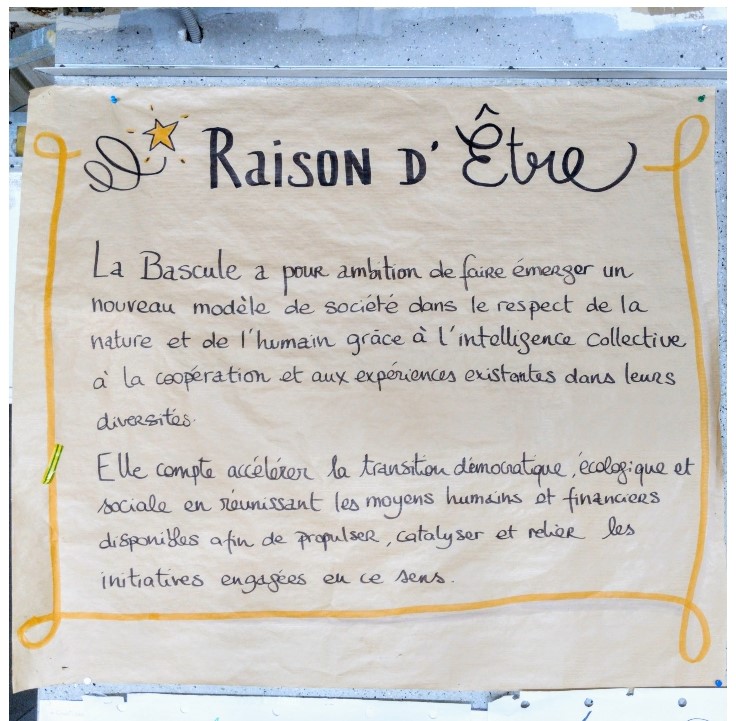 Raison d'Être
La Bascule a pour ambition de faire émerger un
nouveau modèle de société dans le respect de la
nature et de l'humain grâce à l'intelligence collective
à la coopération et aux expériences existantes dans leurs
diversités.
Elle compte accélérer la transition démocratique, écologique et
sociale en réunissant les moyens humains et financiers
disponibles afin de propulser, catalyser et relier les
initiatives engagées en ce sens.